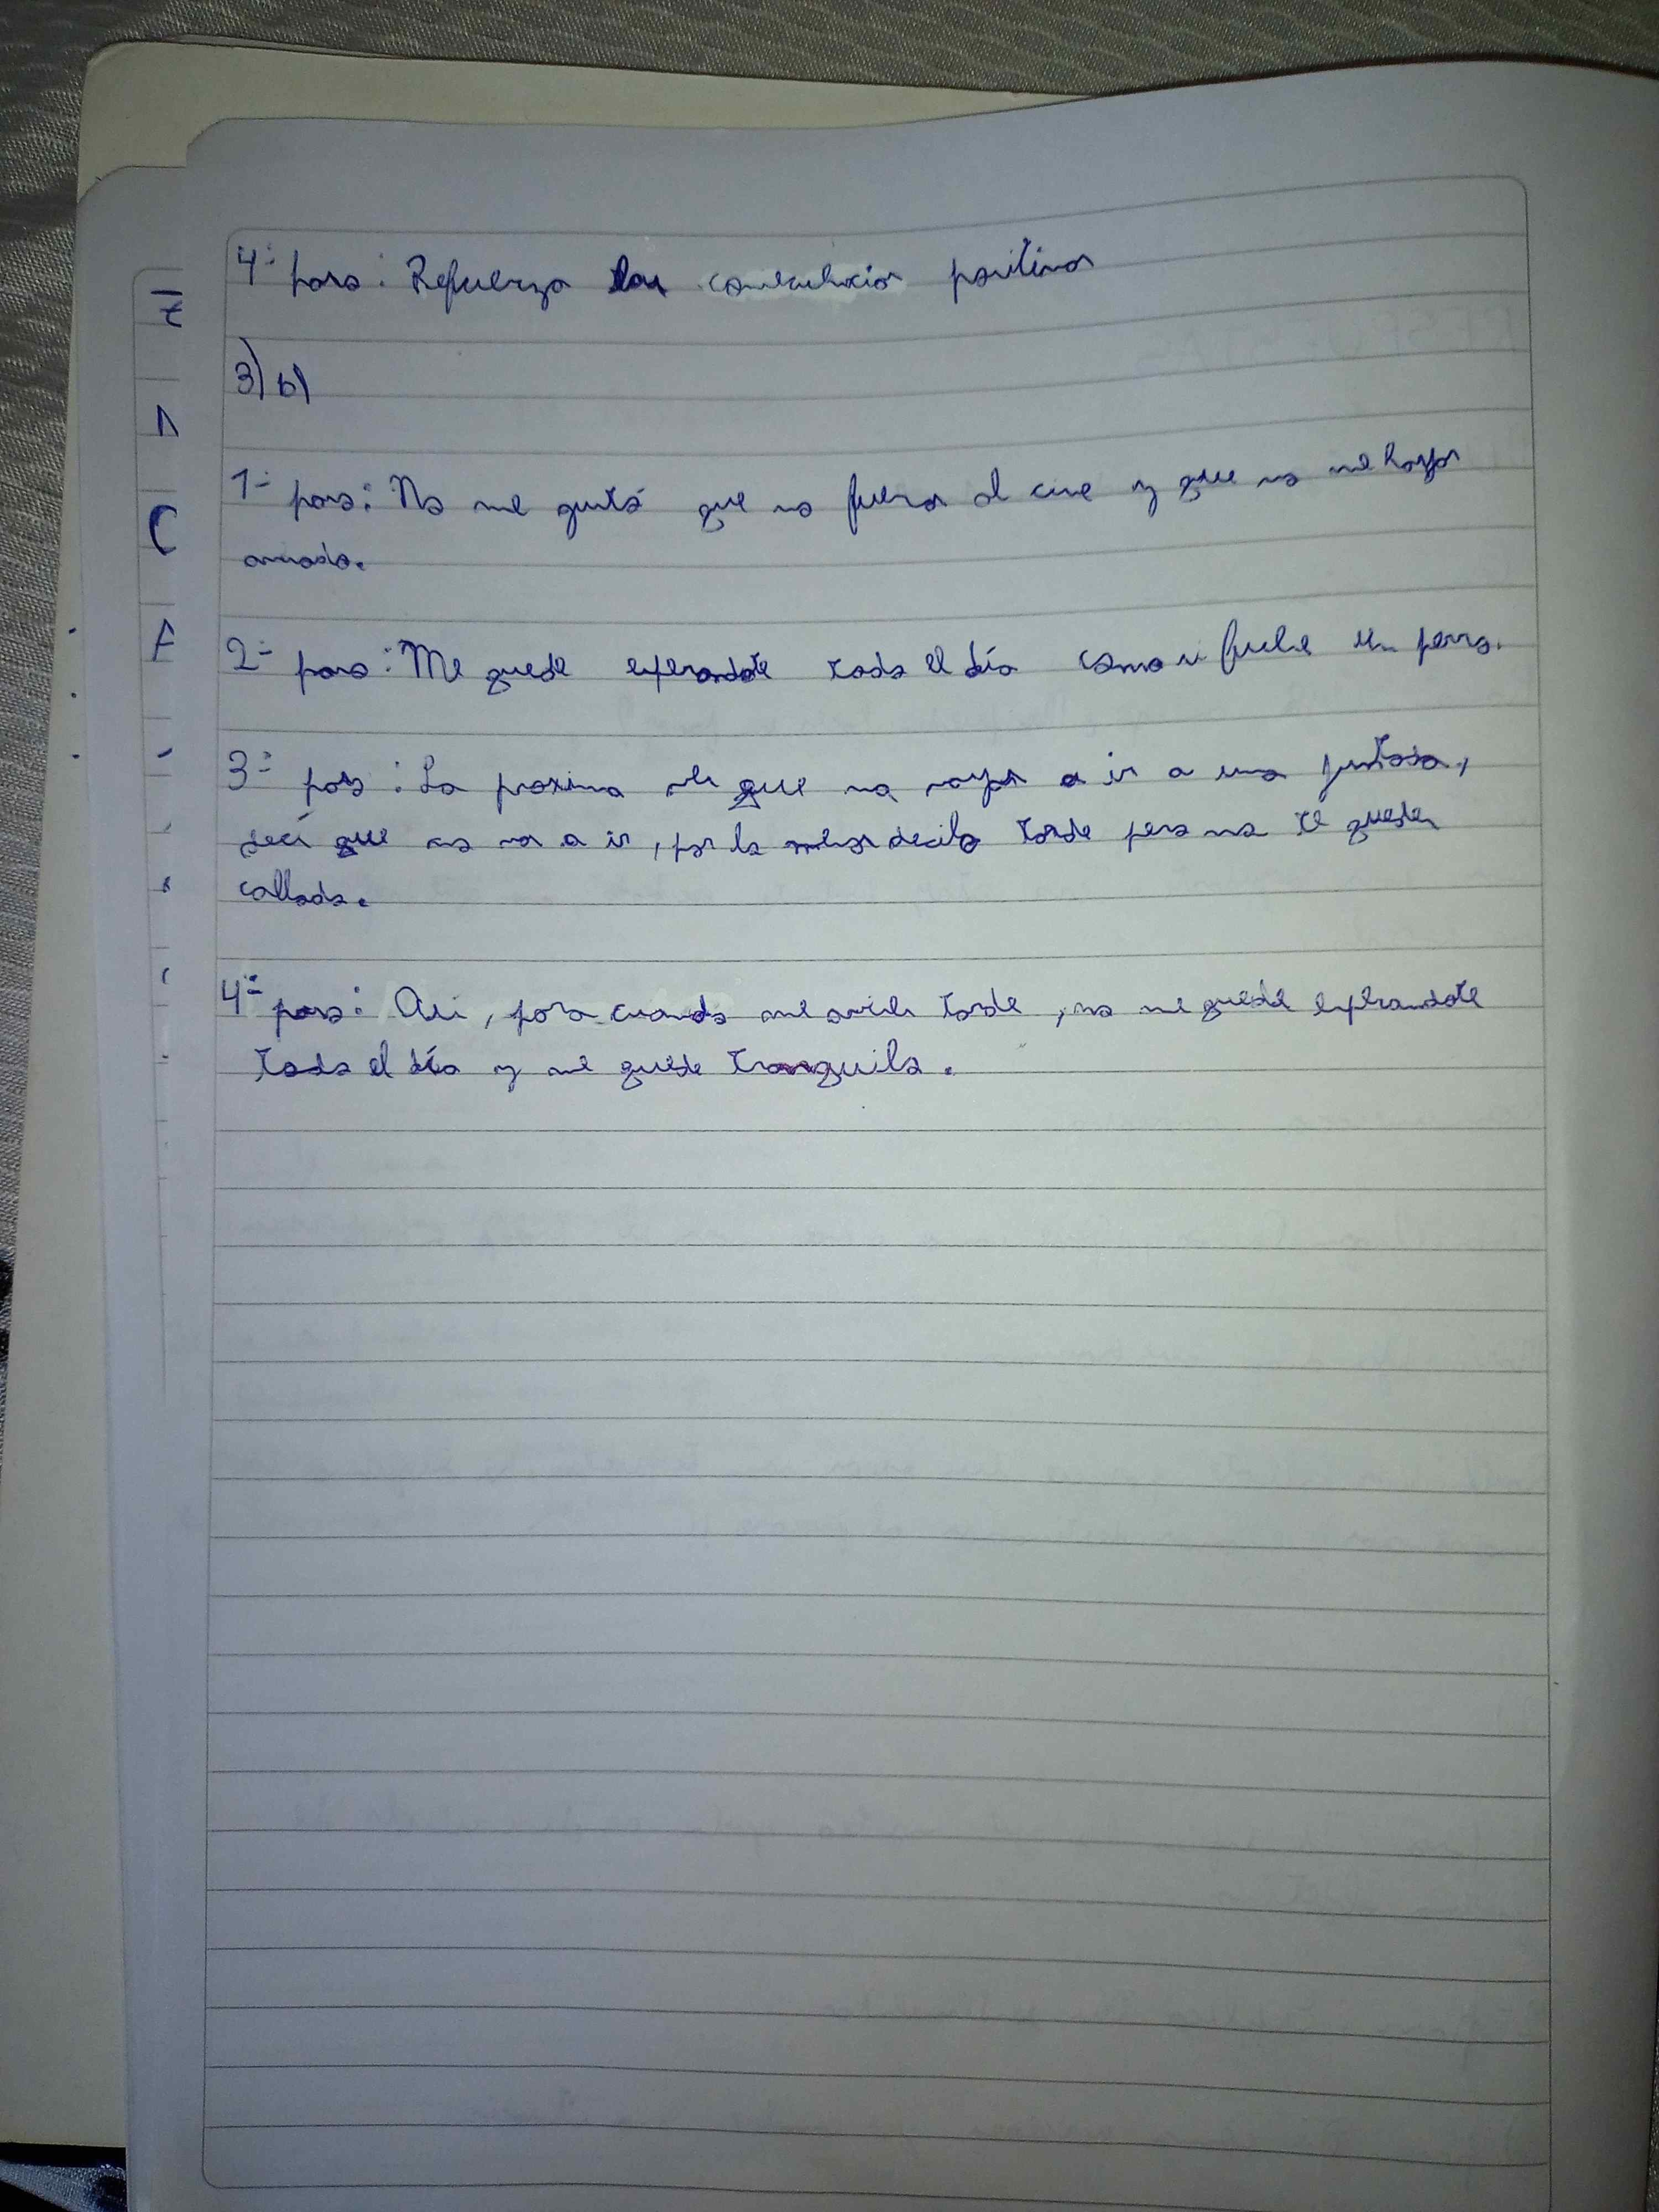 4- paso: Refuerzo las consecuencias positivas
3) b)
1- paso: No me gustó que no fueras al cine y que no me hayas
avisado.
2- paso: Me quede esperandote todo el día como si fuese un perro.
3- paso: La proxima vez que no vayas a ir a una juntada,
decí que no vas a ir, por lo menos decilo tarde pero no te quedes
callado.
4- paso: Asi, para cuando me avises tarde, no me quede esperandote
todo el día y me quede tranquilo.